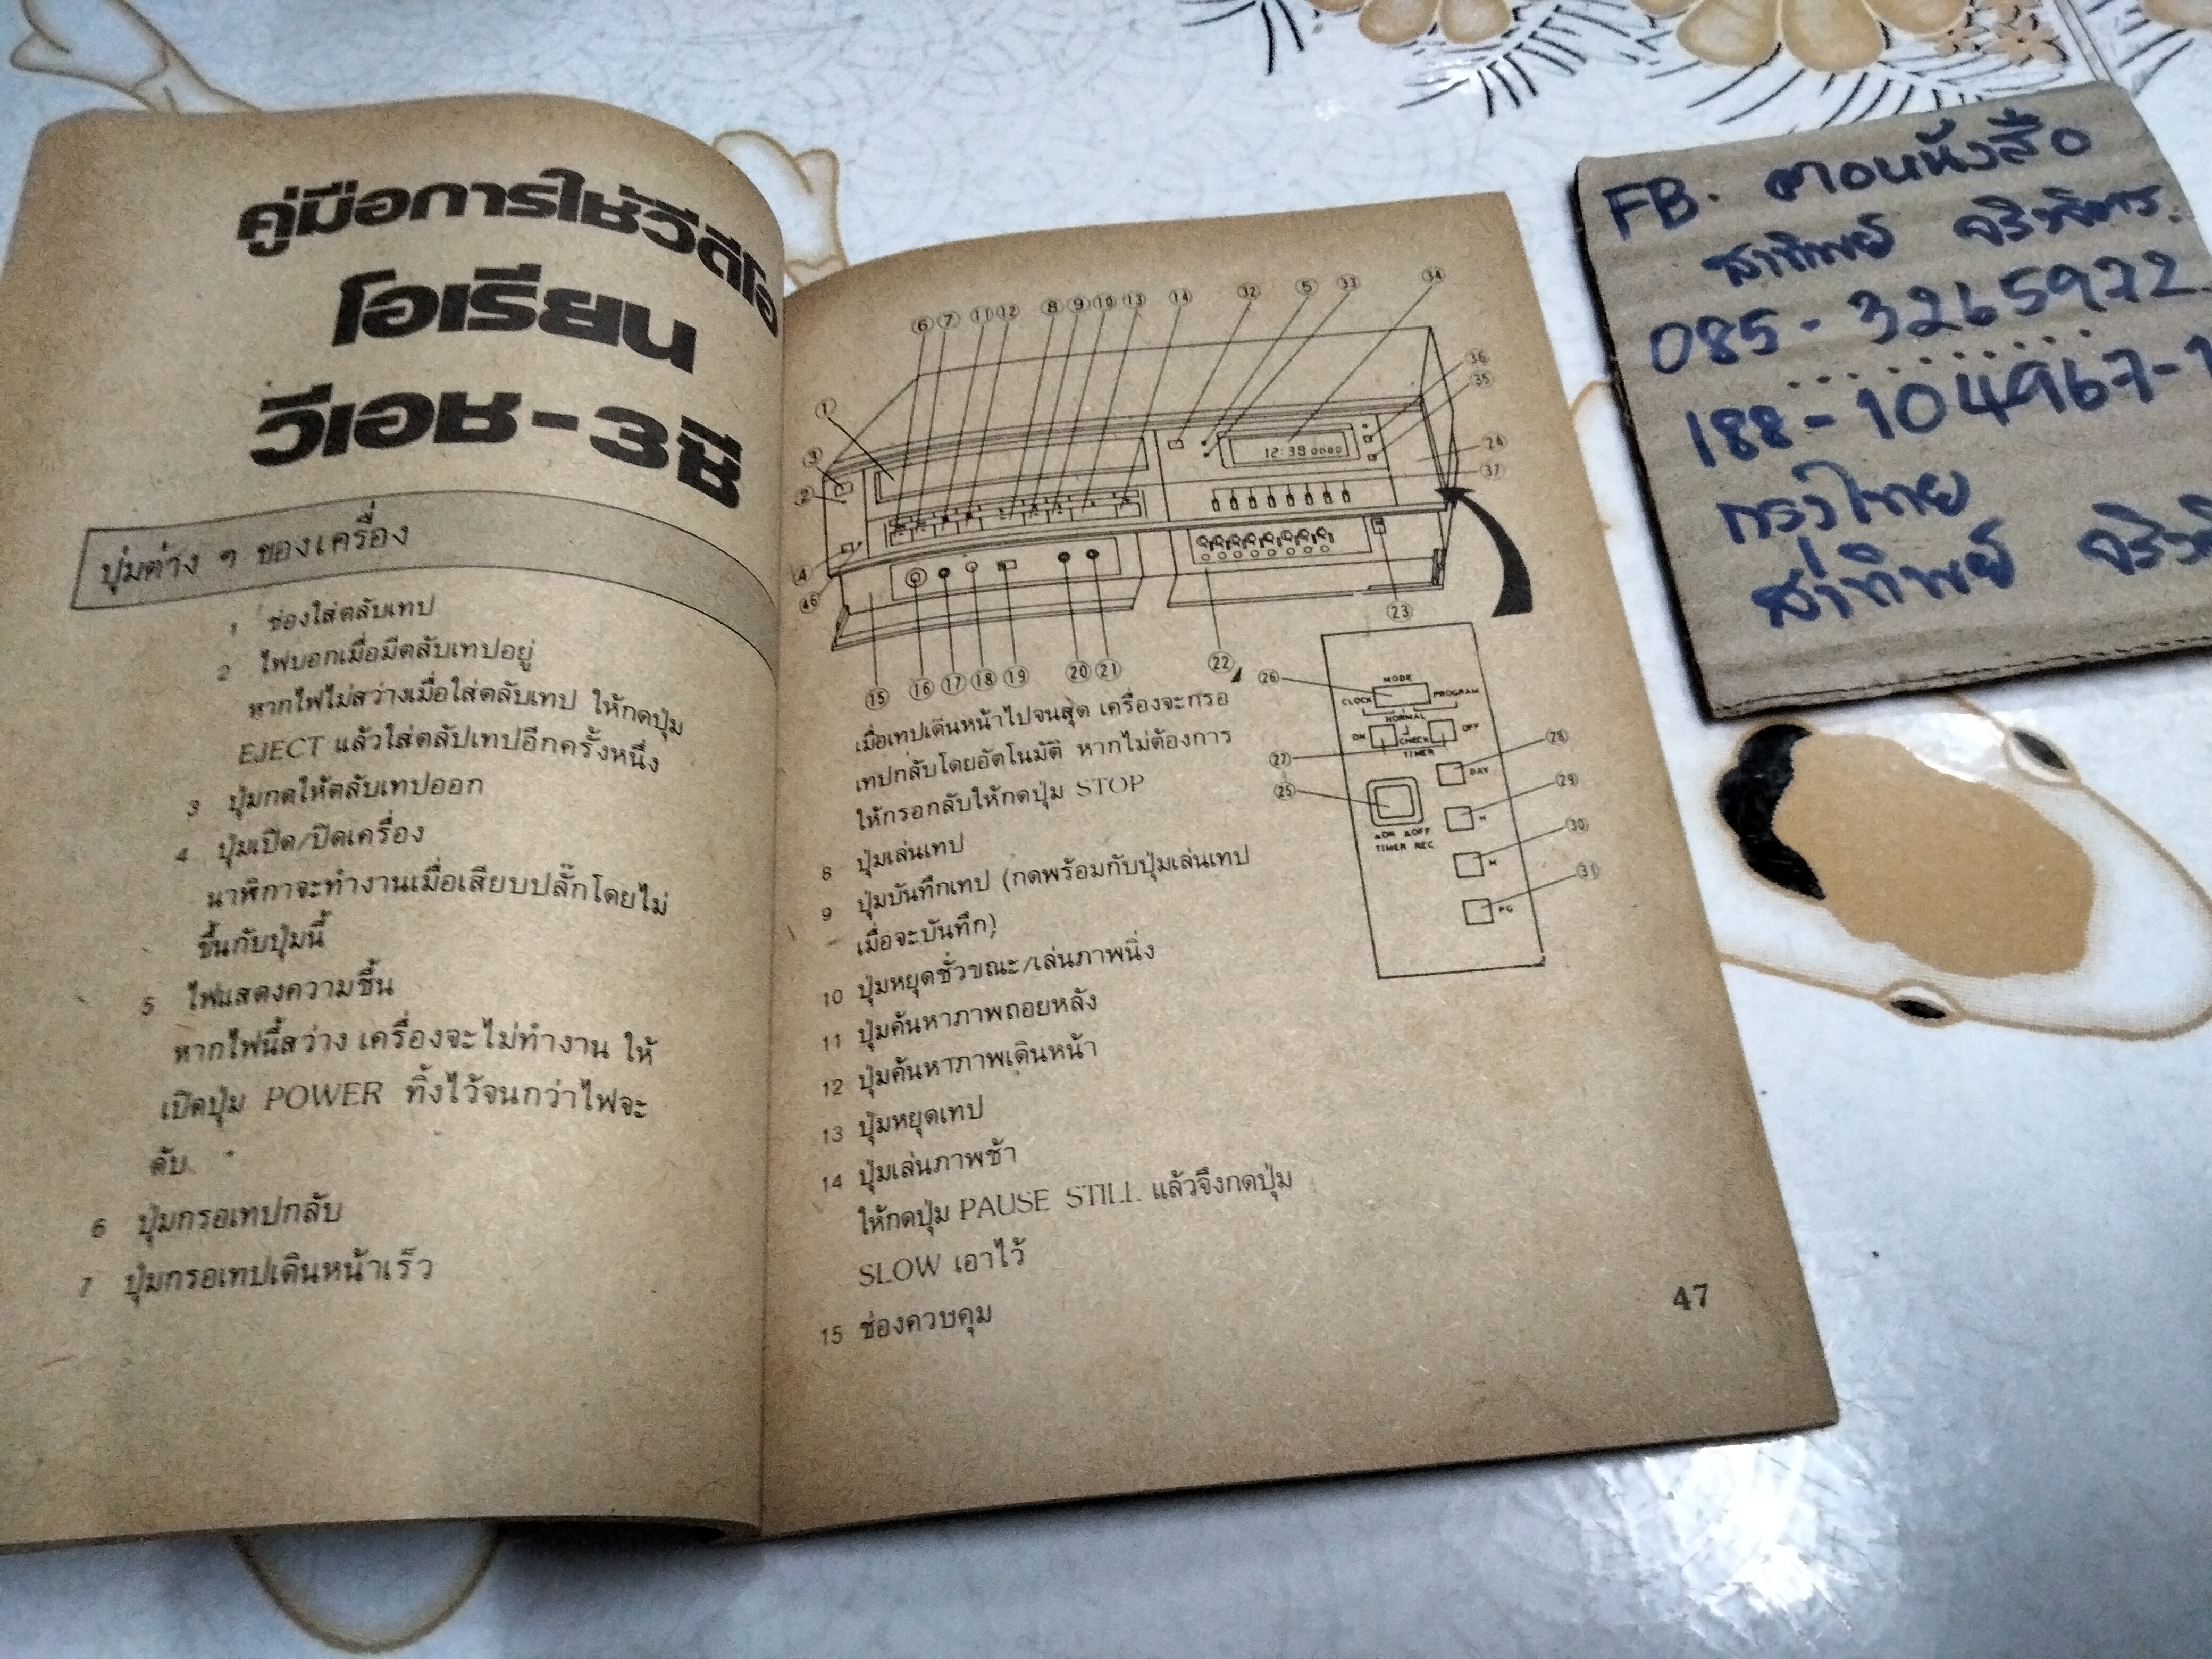 คู่มือการใช้วีดีโอ
โอเรียน
วีเอช-3ซี
ปุ่มต่าง ๆ ของเครื่อง
1 ช่องใส่ตลับเทป
2 ไฟบอกเมื่อมีตลับเทปอยู่
หากไฟไม่สว่างเมื่อใส่ตลับเทป ให้กดปุ่ม
EJECT แล้วใส่ตลับเทปอีกครั้งหนึ่ง
3 ปุ่มกดให้ตลับเทปออก
4 ปุ่มเปิด/ปิดเครื่อง
นาฬิกาจะทำงานเมื่อเสียบปลั๊กโดยไม่
ขึ้นกับปุ่มนี้
5 ไฟแสดงความชื้น
หากไฟนี้สว่าง เครื่องจะไม่ทำงาน ให้
เปิดปุ่ม POWER ทิ้งไว้จนกว่าไฟจะ
ดับ
6 ปุ่มกรอเทปกลับ
7 ปุ่มกรอเทปเดินหน้าเร็ว
6 7 11 12 8 9 10 13 14 32 5 33 34
36
35
1
3
2
24
37
12:38
4
46
23
15 16 17 18 19 20 21 22
26
MODE
CLOCK PROGRAM
NORMAL
ON CHECK OFF
TIMER
27
28
DAY
25
29
H
ON OFF
TIMER REC
30
M
31
PG
เมื่อเทปเดินหน้าไปจนสุด เครื่องจะกรอ
เทปกลับโดยอัตโนมัติ หากไม่ต้องการ
ให้กรอกลับให้กดปุ่ม STOP
8 ปุ่มเล่นเทป
9 ปุ่มบันทึกเทป (กดพร้อมกับปุ่มเล่นเทป
เมื่อจะบันทึก)
10 ปุ่มหยุดชั่วขณะ/เล่นภาพนิ่ง
11 ปุ่มค้นหาภาพถอยหลัง
12 ปุ่มค้นหาภาพเดินหน้า
13 ปุ่มหยุดเทป
14 ปุ่มเล่นภาพช้า
ให้กดปุ่ม PAUSE STILL แล้วจึงกดปุ่ม
SLOW เอาไว้
15 ช่องควบคุม
47
FB. ตอนหนังสือ
สาทิพย์
085-3265972
188-104967-1
กรุงไทย
สาทิพย์